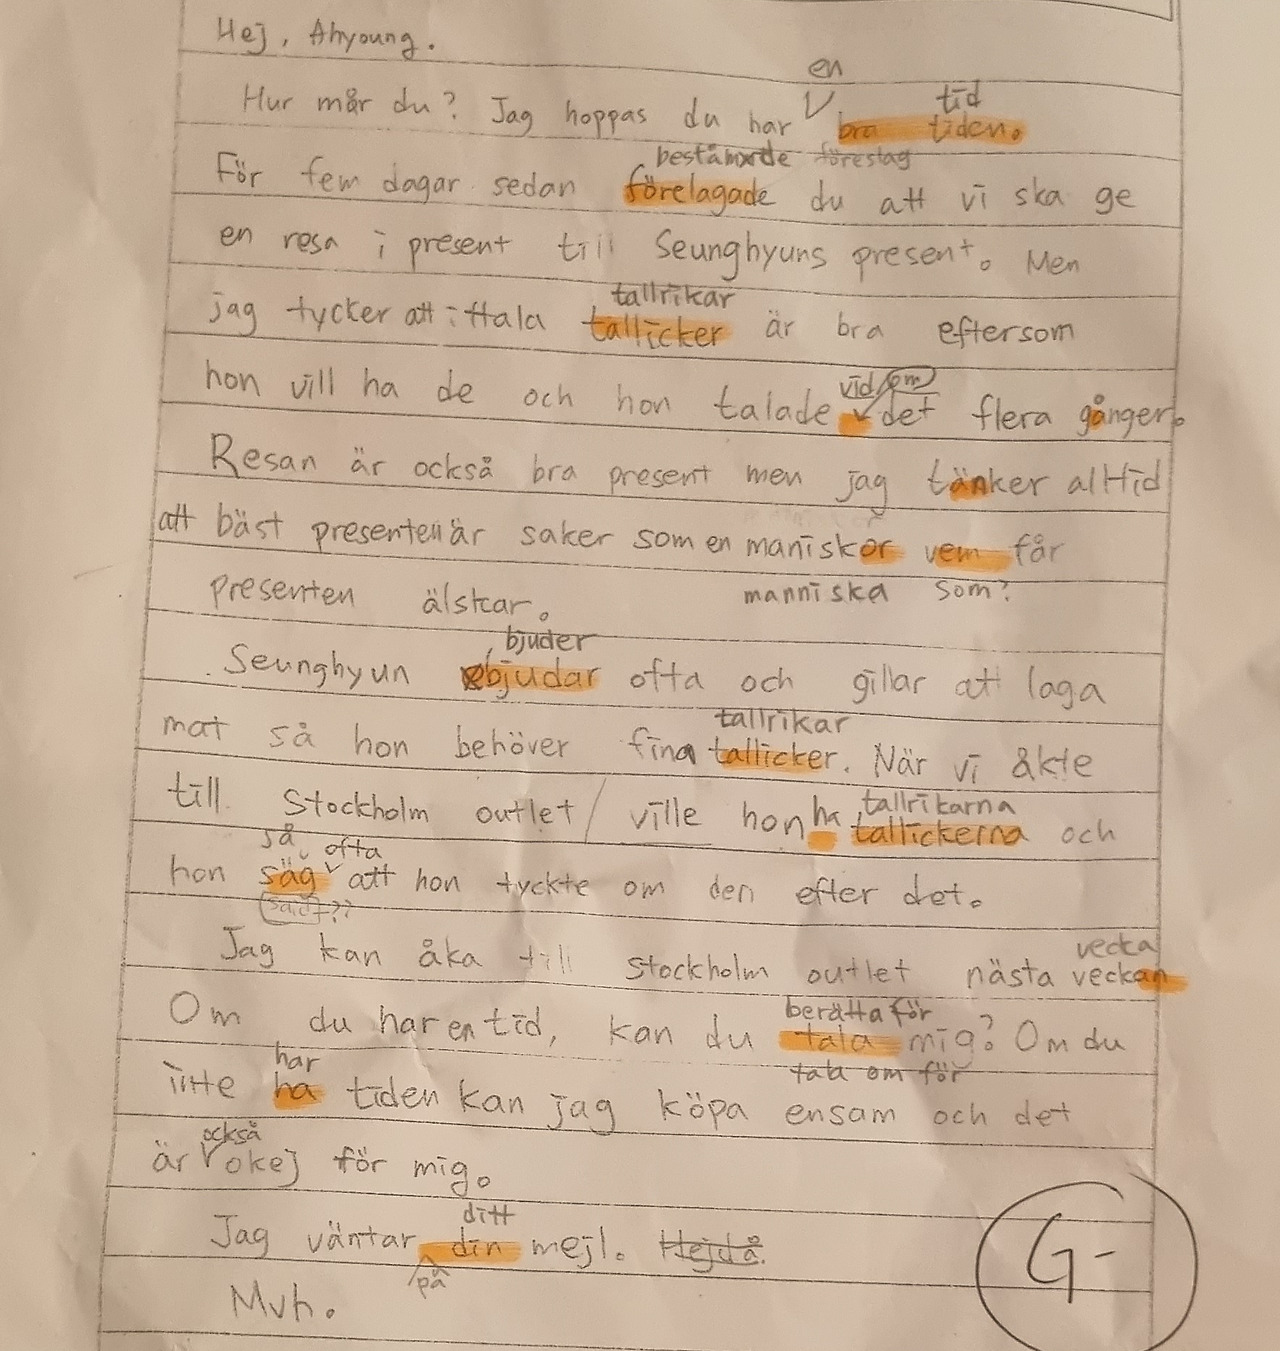 Hej, Ahyoung.
en
Hur mår du? Jag hoppas du har bra tiden.
tid
bestämde föreslag
För fem dagar sedan förelagade du att vi ska ge
en resa i present till Seunghyuns present. Men
tallrikar
jag tycker att ittala tallicker är bra eftersom
vid/om
hon vill ha de och hon talade det flera gånger.
Resan är också bra present men jag tänker alltid
att bäst presenten är saker som en maniskor vem får
manniska som?
presenten älskar.
bjuder
Seunghyun bjudar ofta och gillar att laga
tallrikar
mat så hon behöver fina tallicker. När vi åkte
ha tallrikarna
till Stockholm outlet / ville hon tallickerna och
så ofta
hon säg att hon tyckte om den efter det.
(said)??
vecka
Jag kan åka till Stockholm outlet nästa veckan
berätta för
Om du har en tid, kan du tala mig? Om du
tala om för
har
inte ha tiden kan jag köpa ensam och det
också
är okej för mig.
ditt
Jag väntar din mejl. Hejdå.
på
Mvh.
G-